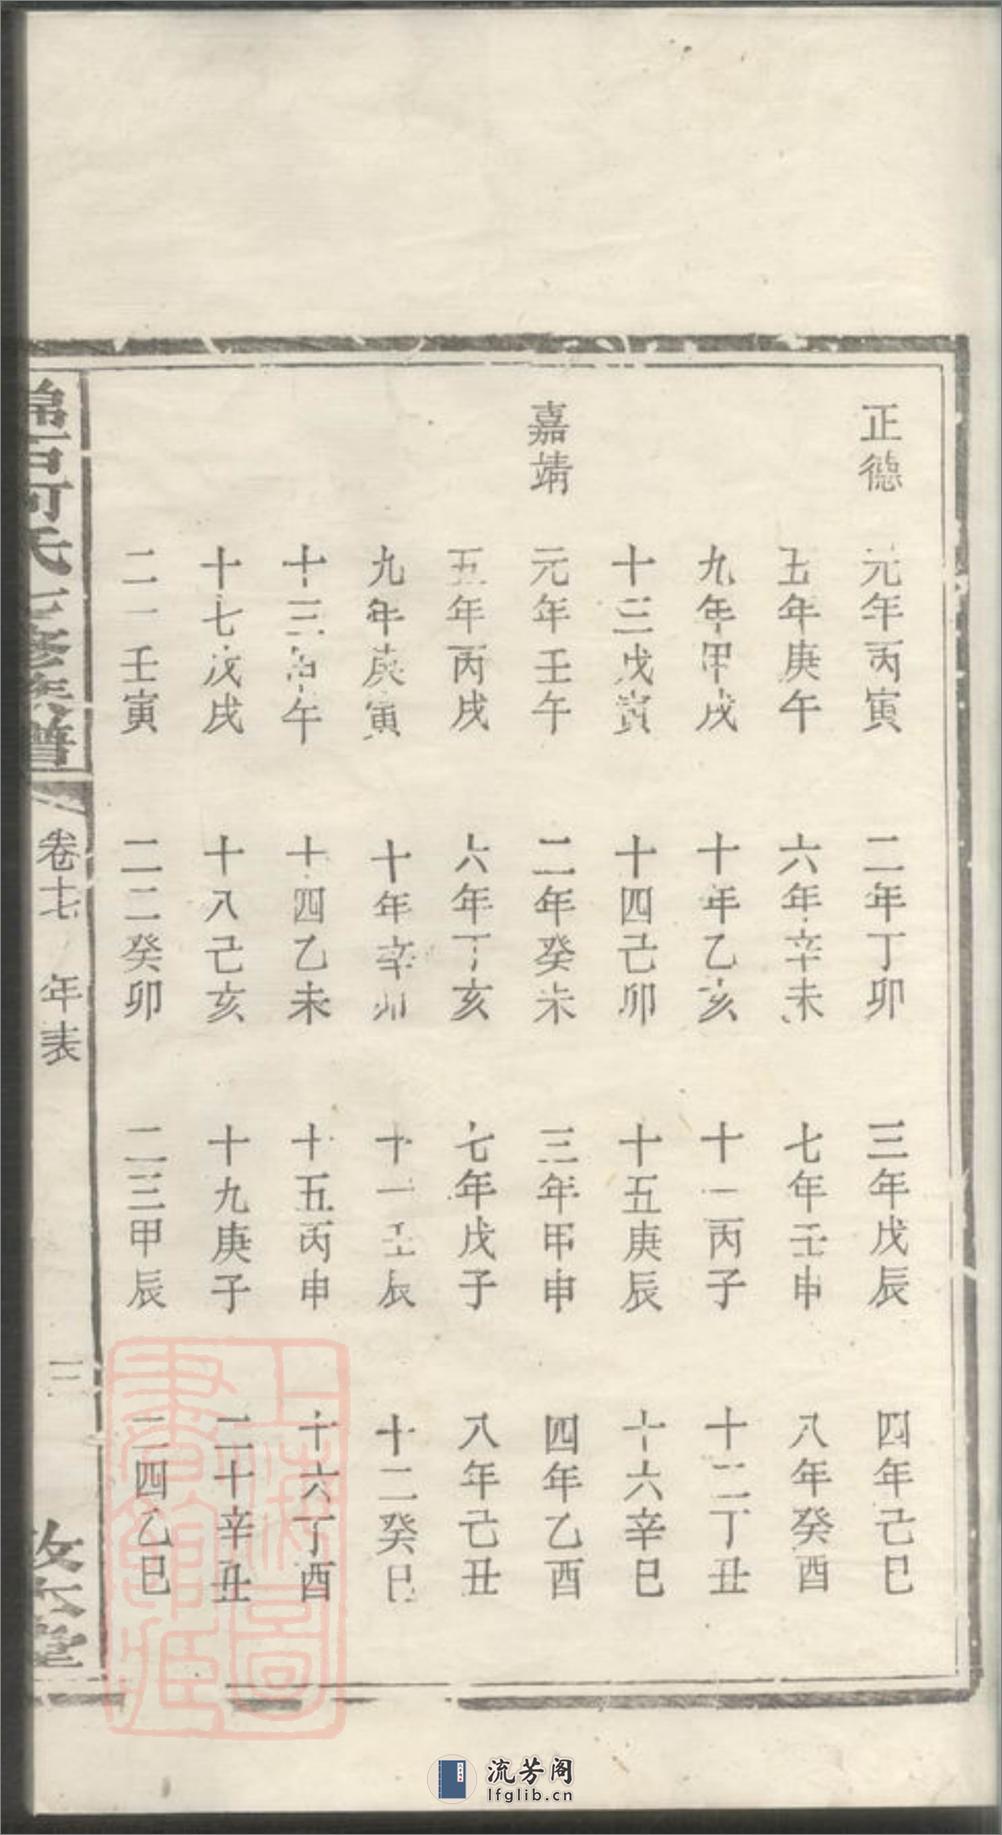 正德 元年丙寅 二年丁卯 三年戊辰 四年己巳
五年庚午 六年辛未 七年壬申 八年癸酉
九年甲戌 十年乙亥 十一丙子 十二丁丑
十三戊寅 十四己卯 十五庚辰 十六辛巳
嘉靖 元年壬午 二年癸未 三年甲申 四年乙酉
五年丙戌 六年丁亥 七年戊子 八年己丑
九年庚寅 十年辛卯 十一壬辰 十二癸巳
十三甲午 十四乙未 十五丙申 十六丁酉
十七戊戌 十八己亥 十九庚子 二十辛丑
二一壬寅 二二癸卯 二三甲辰 二四乙巳
氏七修族譜 卷七 年表 三 敦本堂
上海圖書館藏
流芳阁
lfglib.cn